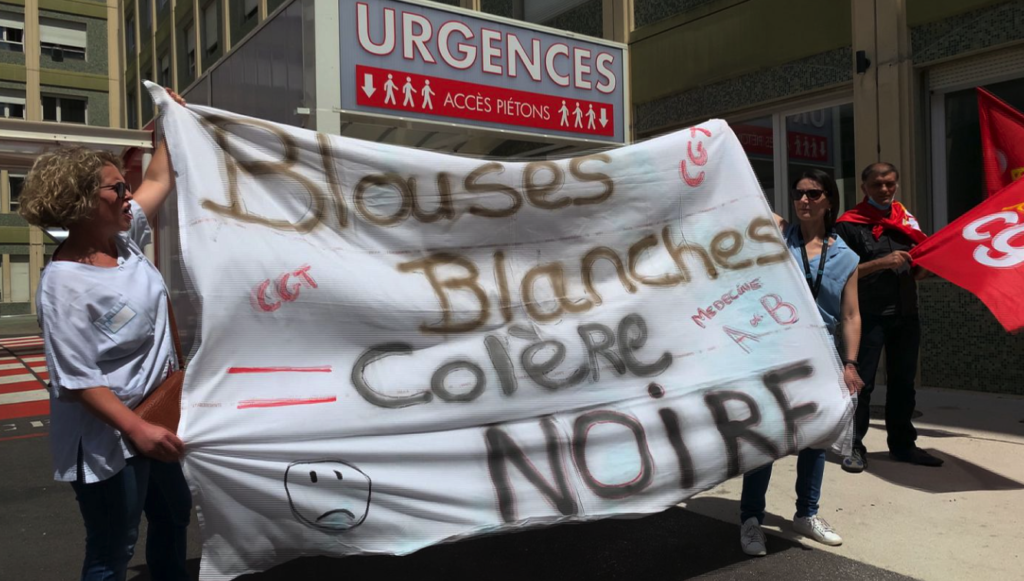 URGENCES
ACCÈS PIÉTONS
Blouses
CGT
Blanches
CGT
MEDECINE
A ou B
Colère
NOIRE
CGT